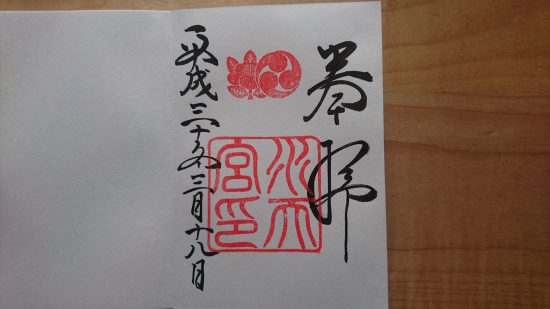 奉拝
水天
宮印
平成三十年三月十八日